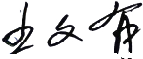 王文有